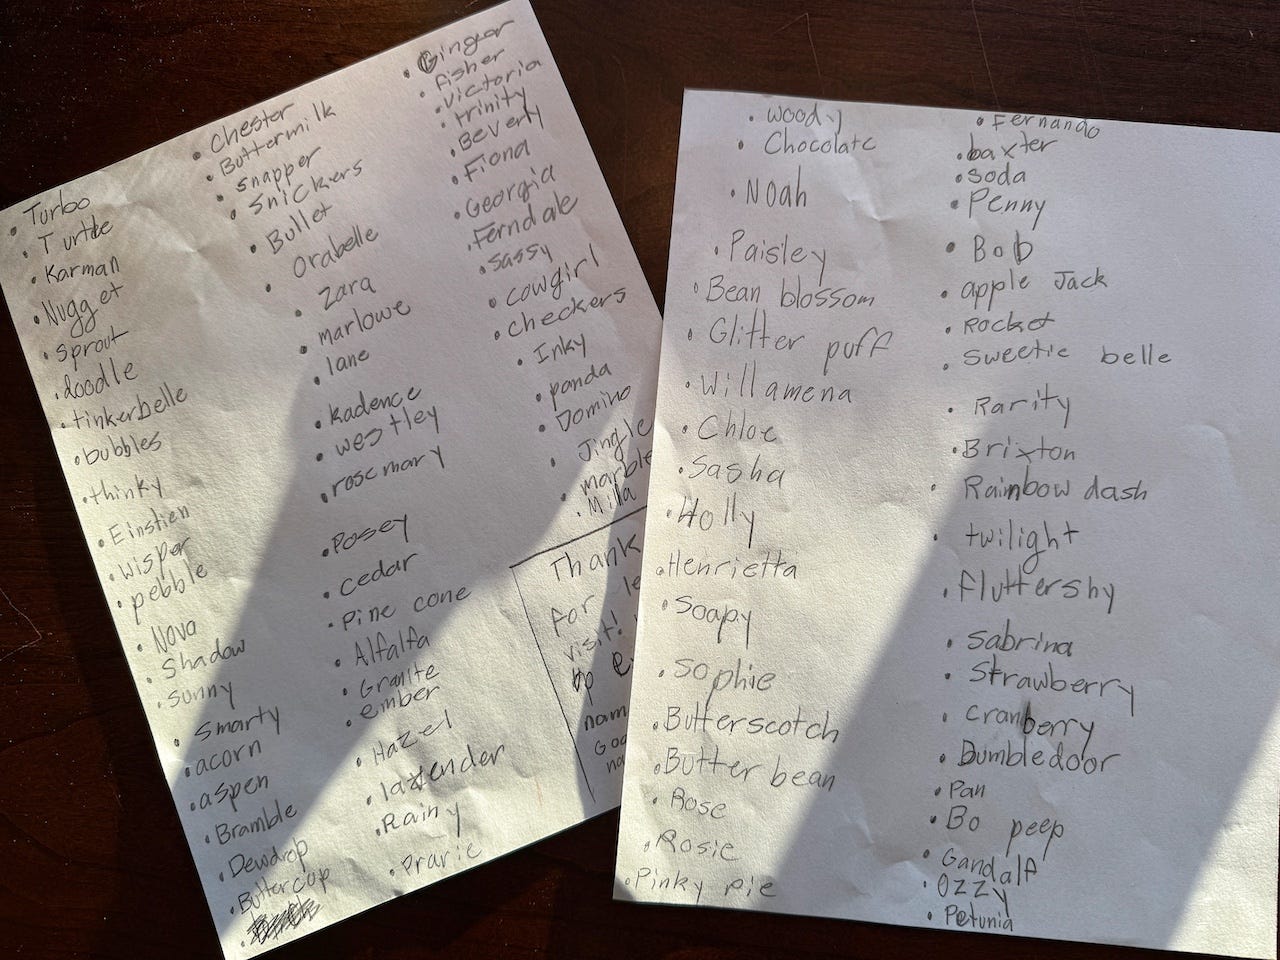 Turbo
Turtle
Karman
Nugget
sprout
doodle
tinkerbelle
bubbles
thinky
Einstien
wisper
pebble
Nova
Shadow
sunny
smarty
acorn
aspen
Bramble
Dewdrop
Buttercup
Chester
Buttermilk
snapper
snickers
Bullet
Orabelle
Zara
marlowe
lane
kadence
westley
rosemary
Posey
cedar
Pine cone
Alfalfa
Granite
ember
Hazel
lavender
Rainy
Prarie
Ginger
Fisher
Victoria
trinity
Beverly
Fiona
Georgia
Ferndale
sassy
cowgirl
checkers
Inky
panda
Domino
Jingle
marble
Milla
Thank
for le
visit!
nam
Goa
na
woody
Chocolate
Noah
Paisley
Bean blossom
Glitter puff
willamena
Chloe
Sasha
Holly
Henrietta
soapy
sophie
Butterscotch
Butter bean
Rose
Rosie
Pinky pie
Fernando
baxter
soda
Penny
Bob
apple Jack
Rocket
sweetie belle
Rarity
Brixton
Rainbow dash
twilight
fluttershy
sabrina
Strawberry
cranberry
Dumbledoor
Pan
Bo peep
Gandalf
Ozzy
Petunia